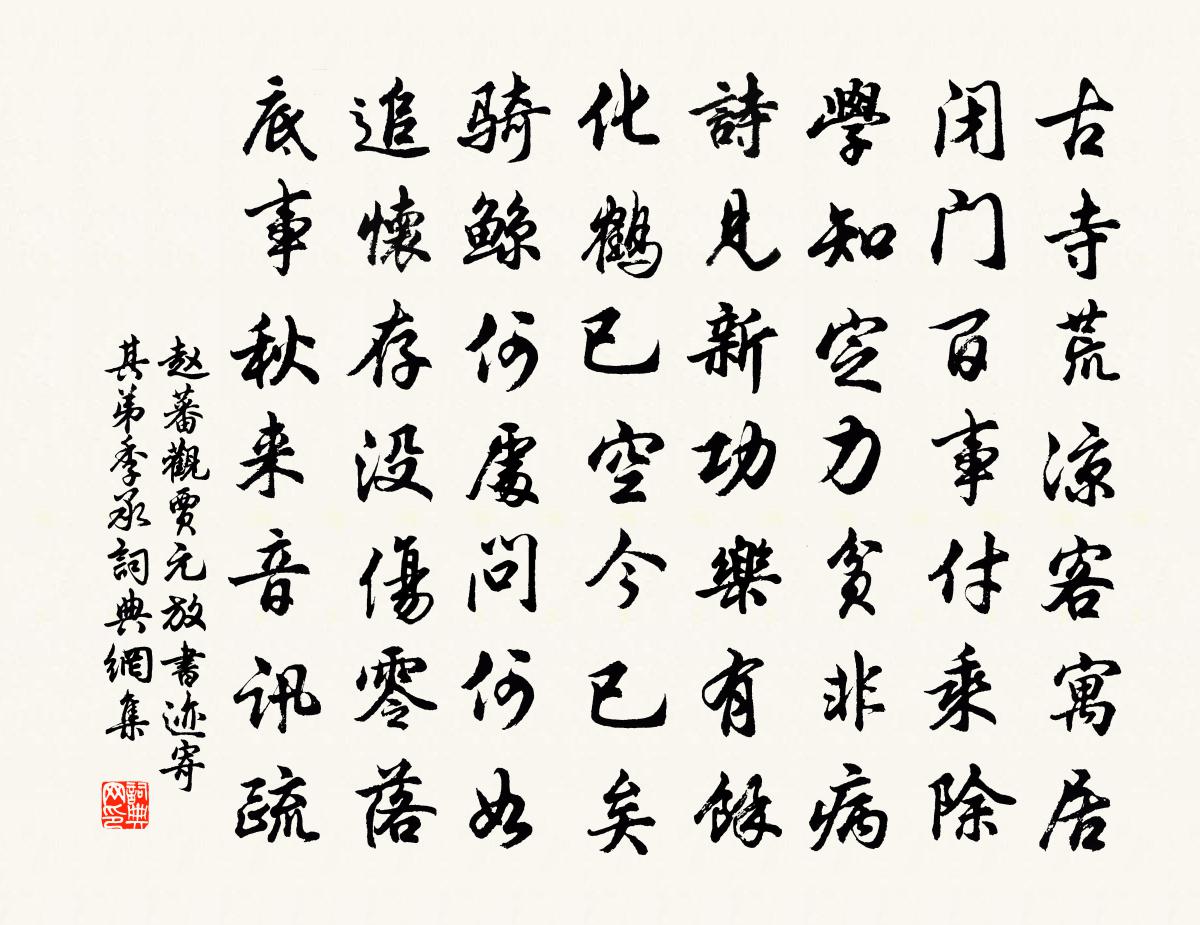 古寺荒凉客寓居
闭门百事付乘除
學知定力貧非病
詩見新功樂有餘
化鶴已空今已矣
骑鲸何處問何如
追懷存没傷零落
底事秋来音訊疏
赵蕃觀贾元放書迹寄
其弟季承詞典網集
詞典网印